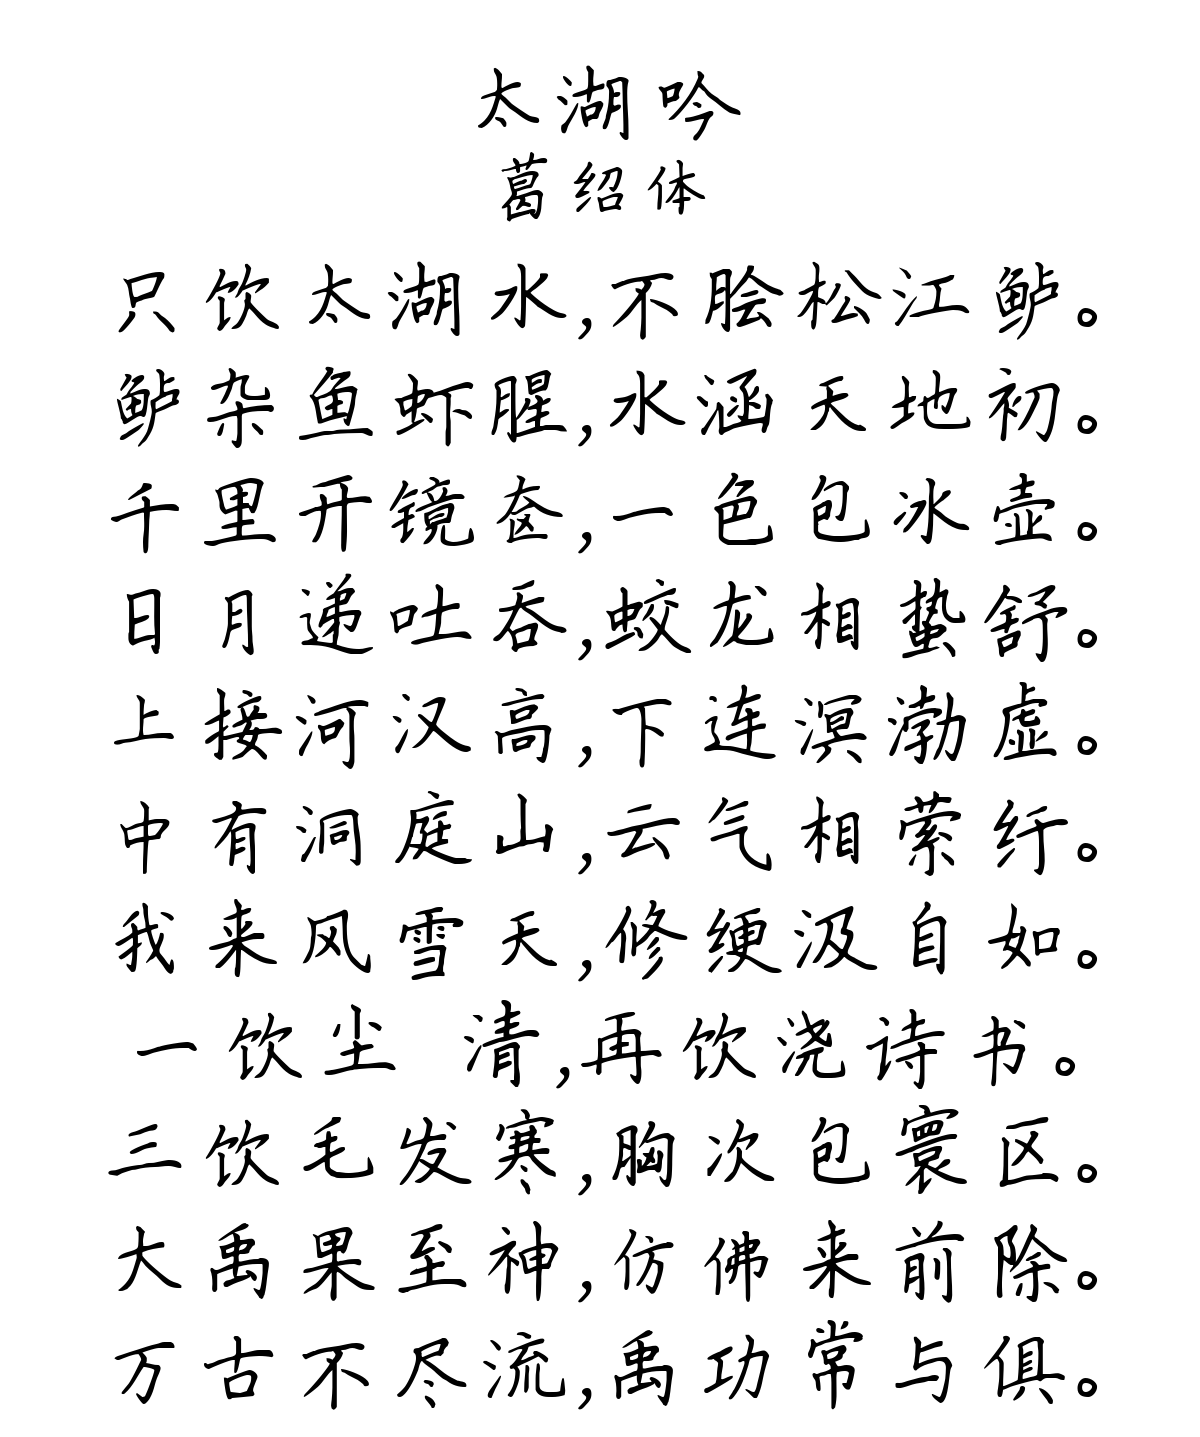 太湖吟
葛绍体
只饮太湖水,不脍松江鲈。
鲈杂鱼虾腥,水涵天地初。
千里开镜奁,一色包冰壶。
日月递吐吞,蛟龙相蛰舒。
上接河汉高,下连溟渤虚。
中有洞庭山,云气相萦纡。
我来风雪天,修绠汲自如。
一饮尘 清,再饮浇诗书。
三饮毛发寒,胸次包寰区。
大禹果至神,仿佛来前除。
万古不尽流,禹功常与俱。